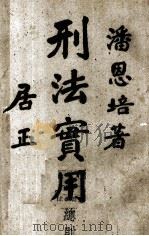 潘恩培著
刑法實用
總則
居正